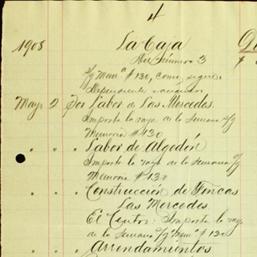 4
1908 La Caja
Mes Número 3
s/g Mem° # 130, como sigue:
Dependientes
Mayo 2 Por Labor de Las Mercedes.
Importe la raya de la Semana s/g
Memoria # 130
" " Labor de Algodón
Importe la raya de la Semana s/g
Memoria # 130
" " Construcción de Fincas
Las Mercedes
El Importe la raya
de la Semana s/g Mem° # 130
" " Arrendamientos